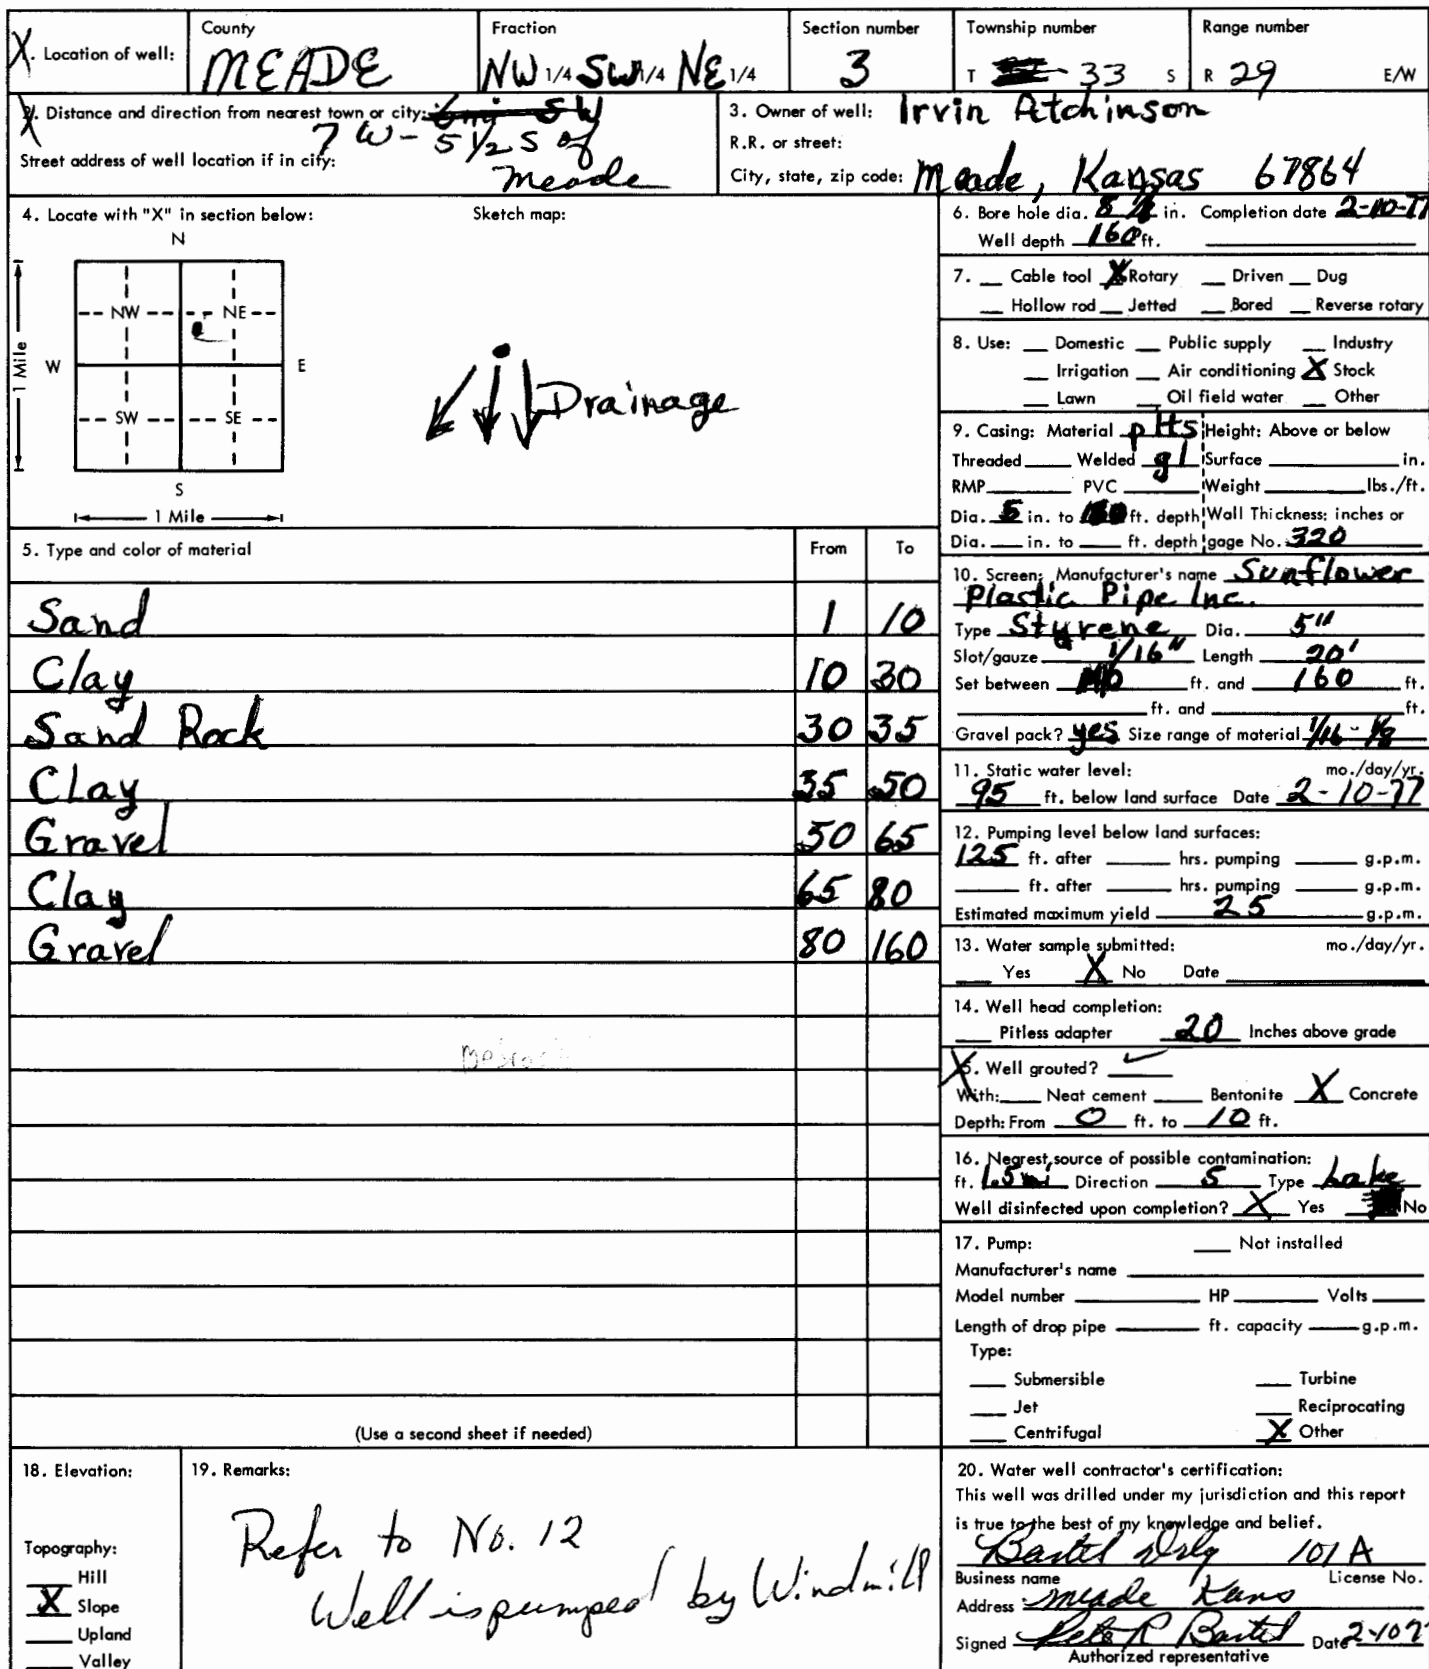 X. Location of well:
County
MEADE
Fraction
NW 1/4 SW 1/4 NE 1/4
Section number
3
Township number
T 33 S
Range number
R 29 E/W
2. Distance and direction from nearest town or city: 6 mi SW
7 W - 5 1/2 S of
Street address of well location if in city:
Meade
3. Owner of well: Irvin Atchinson
R.R. or street:
City, state, zip code: Meade, Kansas 67864
4. Locate with "X" in section below:
Sketch map:
N
NW NE
W E
1 Mile
SW SE
S
1 Mile
Drainage
5. Type and color of material From To
Sand 1 10
Clay 10 30
Sand Rock 30 35
Clay 35 50
Gravel 50 65
Clay 65 80
Gravel 80 160
(Use a second sheet if needed)
6. Bore hole dia. 8 in. Completion date 2-10-77
Well depth 160 ft.
7. Cable tool X Rotary Driven Dug
Hollow rod Jetted Bored Reverse rotary
8. Use: Domestic Public supply Industry
Irrigation Air conditioning X Stock
Lawn Oil field water Other
9. Casing: Material Height: Above or below
Threaded Welded gl Surface in.
RMP PVC Weight lbs./ft.
Dia. 5 in. to ft. depth Wall Thickness: inches or
Dia. in. to ft. depth gage No. 320
10. Screen: Manufacturer's name Sunflower
Plastic Pipe Inc.
Type Styrene Dia. 5"
Slot/gauze 1/16" Length 20'
Set between ft. and 160 ft.
ft. and ft.
Gravel pack? yes Size range of material 1/16 - 1/8
11. Static water level: mo./day/yr.
95 ft. below land surface Date 2-10-77
12. Pumping level below land surfaces:
125 ft. after hrs. pumping g.p.m.
ft. after hrs. pumping g.p.m.
Estimated maximum yield 25 g.p.m.
13. Water sample submitted: mo./day/yr.
Yes X No Date
14. Well head completion:
Pitless adapter 20 Inches above grade
15. Well grouted? ✓
With: Neat cement Bentonite X Concrete
Depth: From 0 ft. to 10 ft.
16. Nearest source of possible contamination:
ft. 1.5 mi Direction S Type Lake
Well disinfected upon completion? X Yes No
17. Pump: Not installed
Manufacturer's name
Model number HP Volts
Length of drop pipe ft. capacity g.p.m.
Type:
Submersible Turbine
Jet Reciprocating
Centrifugal X Other
18. Elevation:
Topography:
Hill
X Slope
Upland
Valley
19. Remarks:
Refer to No. 12
Well is pumped by Windmill
20. Water well contractor's certification:
This well was drilled under my jurisdiction and this report
is true to the best of my knowledge and belief.
Bartel Drlg 101 A
Business name License No.
Address Meade Kans
Signed Pete R Bartel Date 2-10-7
Authorized representative